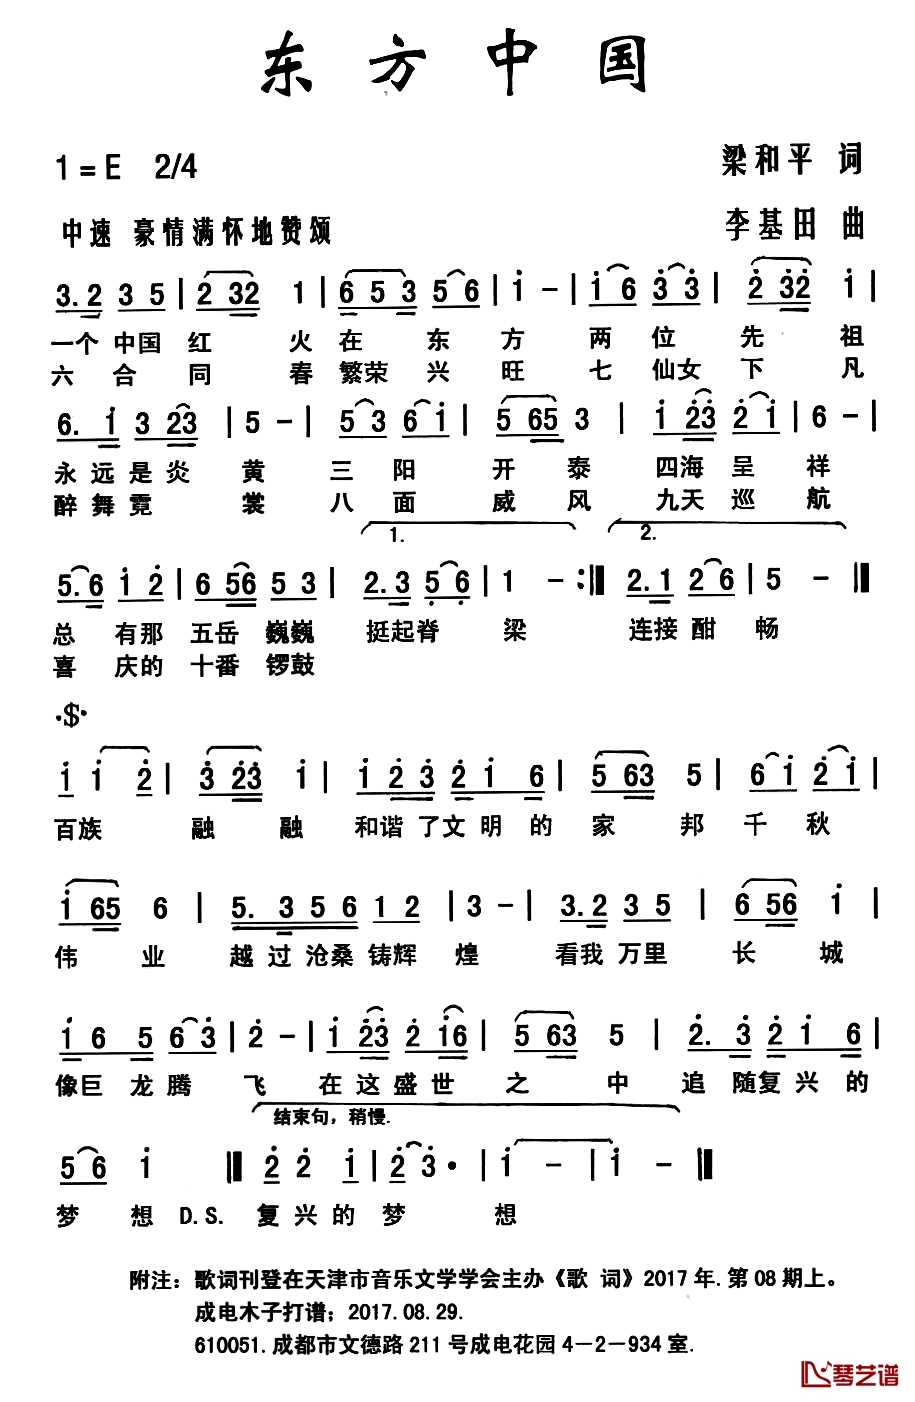 东方中国
1=E 2/4
梁和平 词
中速 豪情满怀地赞颂
李基田 曲
3.2 3 5 | 2 32 1 | 6 5 3 5 6 | i - | i 6 3 3 | 2 32 i |
一个 中国 红 火 在 东 方 两 位 先 祖
六 合 同 春 繁荣 兴 旺 七 仙女 下 凡
6. i 3 23 | 5 - | 5 3 6 i | 5 65 3 | i 23 2 i | 6 - |
永 远 是 炎 黄 三 阳 开 泰 四海 呈 祥
醉 舞 霓 裳 八 面 威 风 九天 巡 航
1. 2.
5. 6 i 2 | 6 56 5 3 | 2.3 5 6 | 1 - :|| 2.1 2 6 | 5 - ||
总 有那 五岳 巍巍 挺起脊 梁 连接 酣 畅
喜 庆的 十番 锣鼓
·$·
i i 2 | 3 23 i | i 2 3 2 i 6 | 5 63 5 | 6 i 2 i |
百族 融 融 和谐 了文 明 的 家 邦 千 秋
i 65 6 | 5. 3 5 6 1 2 | 3 - | 3.2 3 5 | 6 56 i |
伟 业 越 过 沧桑 铸辉 煌 看我 万里 长 城
i 6 5 6 3 | 2 - | i 23 2 i6 | 5 63 5 | 2. 3 2 i 6 |
像巨 龙 腾 飞 在 这 盛 世 之 中 追 随复 兴 的
结束句，稍慢.
5 6 i || 2 2 i | 2 3 · | i - | i - ||
梦 想 D.S. 复 兴 的 梦 想
附注：歌词刊登在天津市音乐文学学会主办《歌 词》2017年.第08期上。
成电木子打谱；2017.08.29.
610051.成都市文德路211号成电花园4－2－934室.
琴艺谱